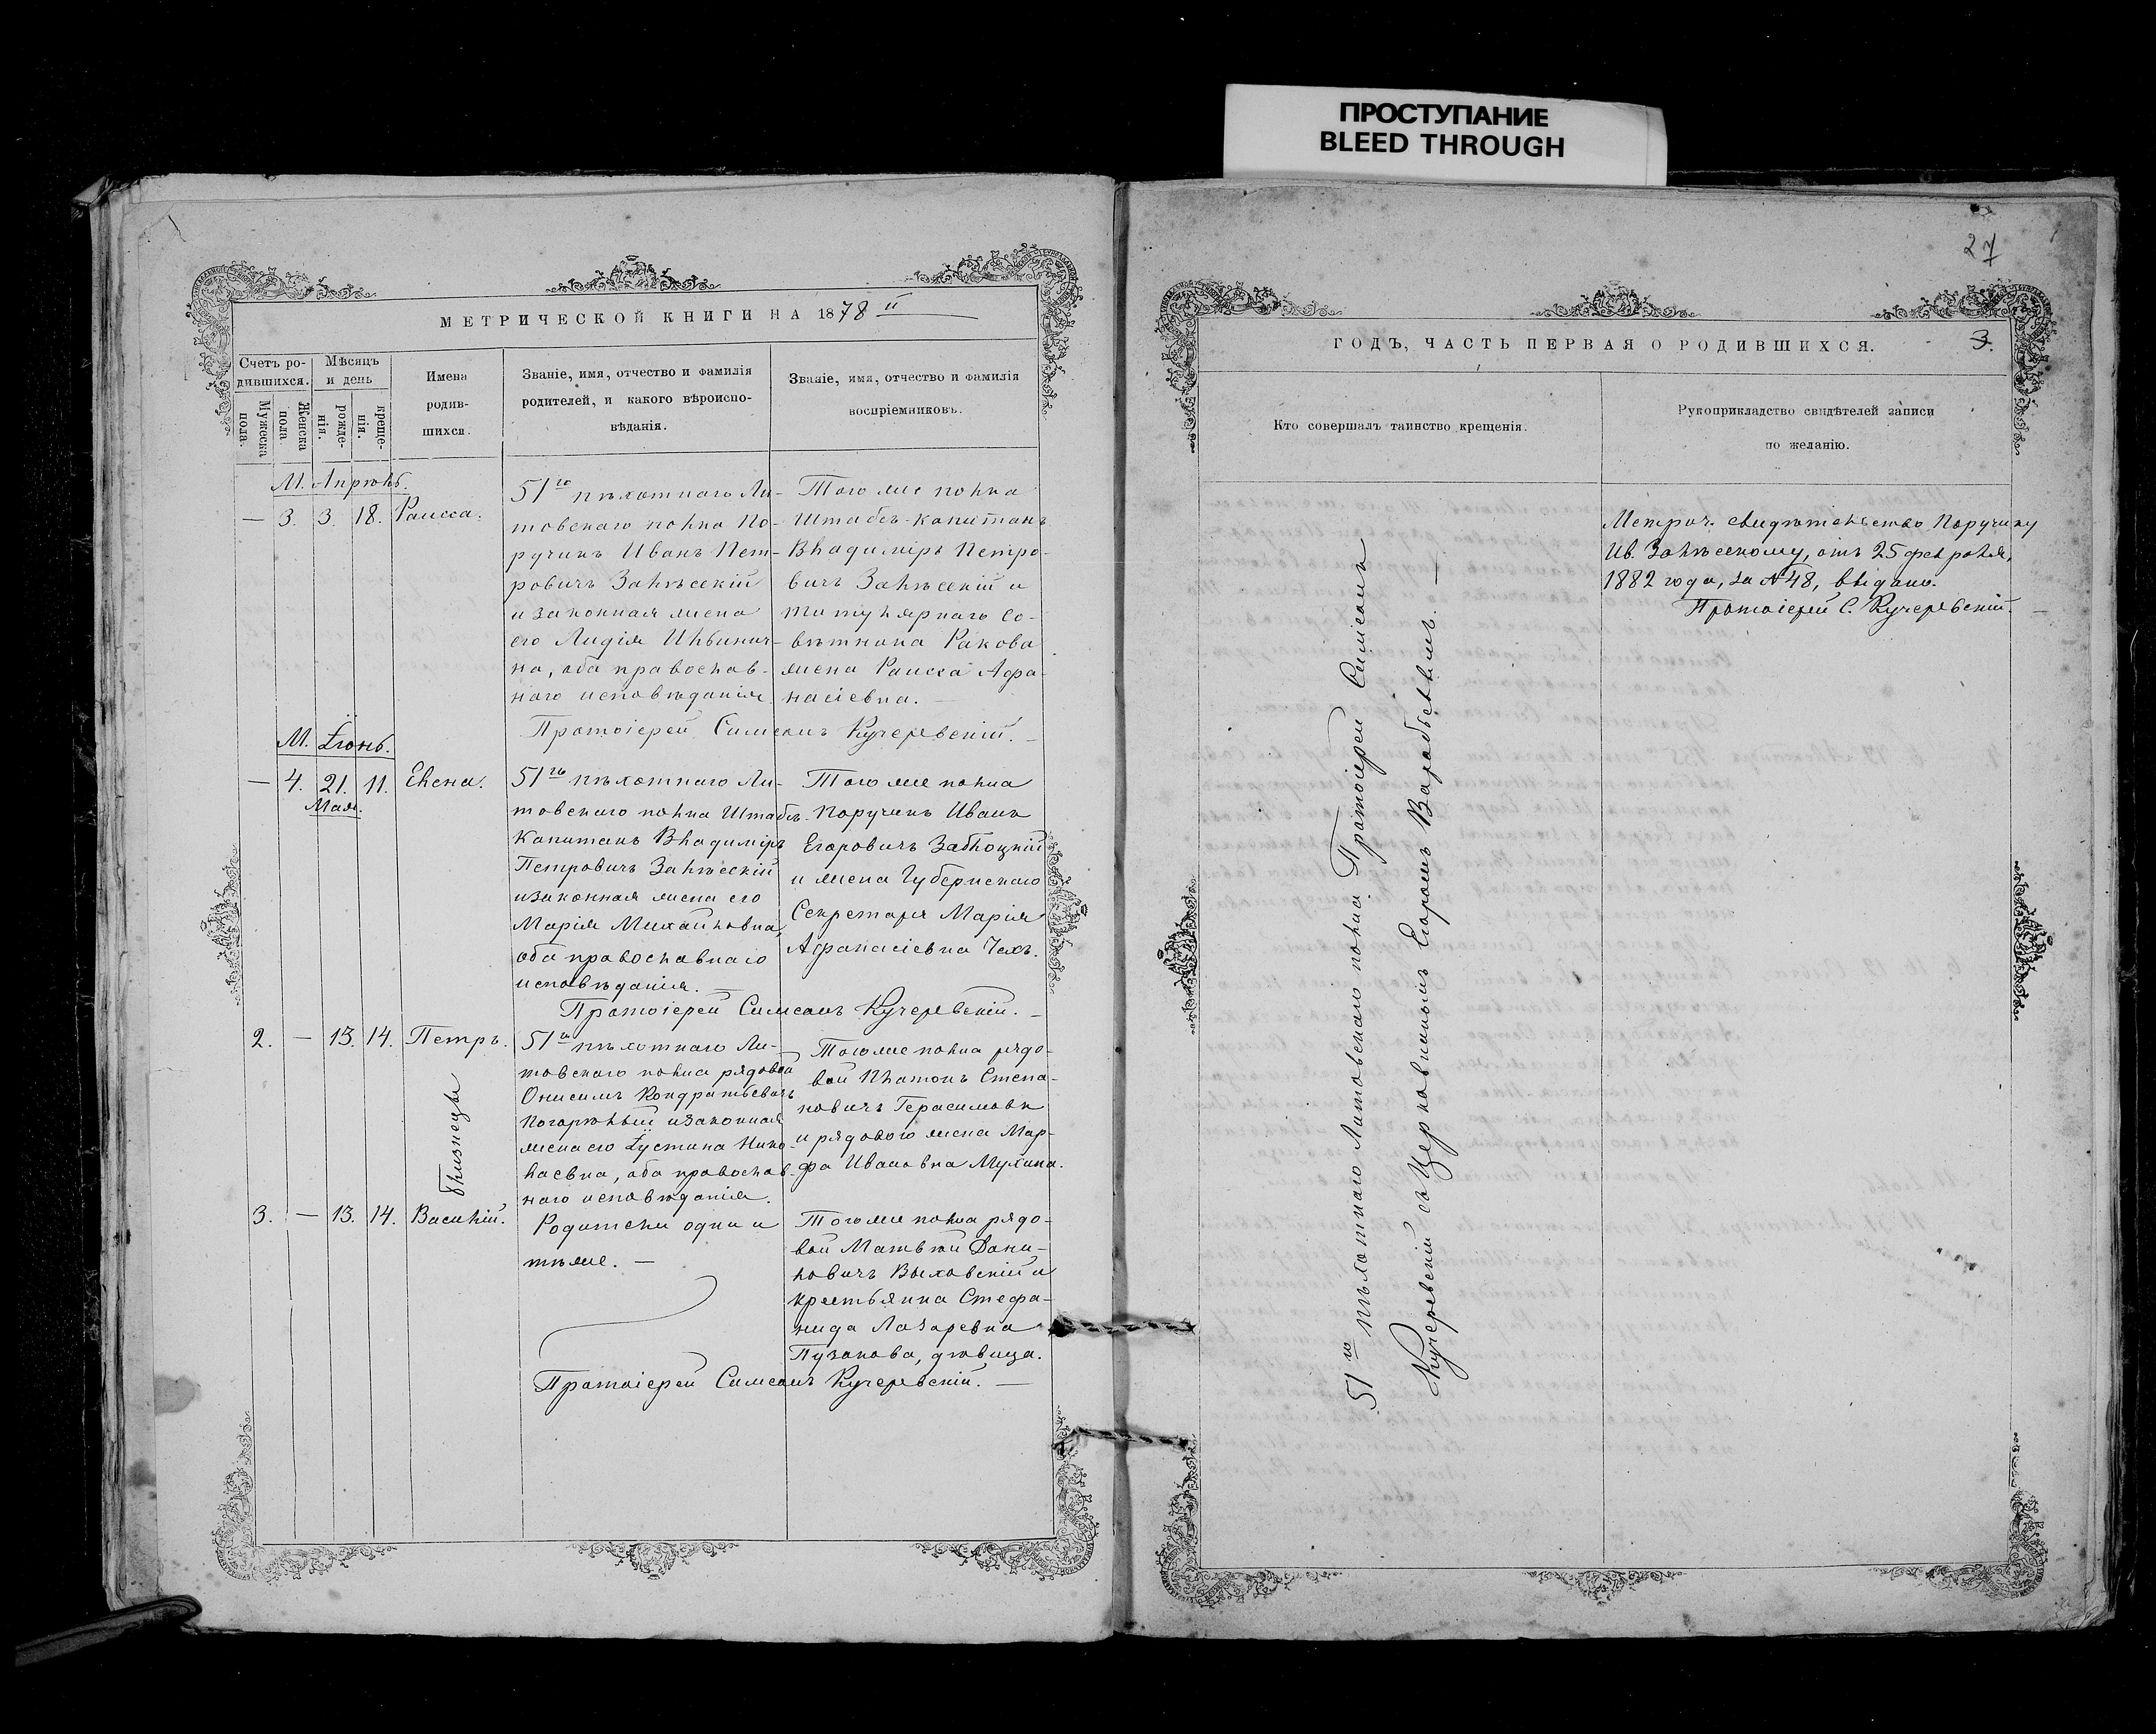 ПРОСТУПАНИЕ
BLEED THROUGH
27
МЕТРИЧЕСКОЙ КНИГИ НА 1878й
Счетъ родившихся.
Мѣсяцъ и день
Мужеска пола.
Женска пола.
рожденія.
крещенія.
Имена
родив-
шихся.
Званіе, имя, отчество и фамилія
родителей, и какого вѣроиспо-
вѣданія.
Званіе, имя, отчество и фамилія
воспріемниковъ.
М. Апрѣль.
— 3. 3. 18. Раисса.
51го пѣхотнаго Ли-
товскаго полка По-
ручикъ Иванъ Пет-
ровичъ Залѣсскій
и законная жена
его Лидія Ильинич-
на, оба православ-
наго исповѣданія
Того же полка
Штабсъ-капитанъ
Владиміръ Петро-
вичъ Залѣсскій и
титулярнаго со-
вѣтника Ракова
жена Раисса Афа-
насіевна. —
Протоіерей Симеонъ Кучеревскій. —
М. Іюнь.
— 4. 21. 11. Елена.
Мая.
51го пѣхотнаго Ли-
товскаго полка Штабсъ-
Капитанъ Владиміръ
Петровичъ Залѣсскій
и законная жена его
Марія Михайловна,
оба православнаго
исповѣданія. —
Того же полка
Поручикъ Иванъ
Егоровичъ Заблоцкій
и жена Губернскаго
Секретаря Марія
Афанасіевна Чахъ.
Протоіерей Симеонъ Кучеревскій. —
2. — 13. 14. Петръ.
Близнецы
51го пѣхотнаго Ли-
товскаго полка рядовой
Онисимъ Кондратьевичъ
Погорѣлый и законная
жена его Іустина Нико-
лаевна, оба православ-
наго исповѣданія.
Того же полка рядо-
вой Платонъ Степа-
новичъ Герасимовъ
и рядового жена Мар-
фа Ивановна Мухина.
3. — 13. 14. Василій.
Родители одни и
тѣже. —
Того же полка рядо-
вой Матвѣй Дани-
ловичъ Выховскій и
крестьянка Стефа-
нида Лазаревна
Пузанова, дѣвица.
Протоіерей Симеонъ Кучеревскій. —
ГОДЪ, ЧАСТЬ ПЕРВАЯ О РОДИВШИХСЯ.
3.
Кто совершалъ таинство крещенія.
Рукоприкладство свидѣтелей записи
по желанію.
51го пѣхотнаго Литовскаго полка Протоіерей Симеонъ
Кучеревскій съ Церковникомъ Егоромъ Воробьевымъ. —
Метрич. свидѣтельство Поручику
Ив. Залѣсскому, отъ 25 февраля,
1882 года, за № 48, выдано.
Протоіерей С. Кучеревскій. —